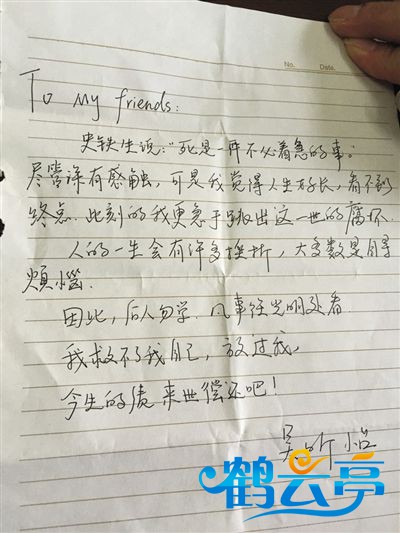 No.
Date.
To My friends:
史铁生说:“死是一件不必着急的事。”
尽管深有感触,可是我觉得人生好长,看不到
终点.此刻的我更急于跳出这一世的腐坏.
人的一生会有许多挫折,大多数是自寻
煩惱.
因此,后人勿学.凡事往光明处看.
我救不了我自己,放过我,
今生的债来世偿还吧!
吴昕怡
鹤云亭